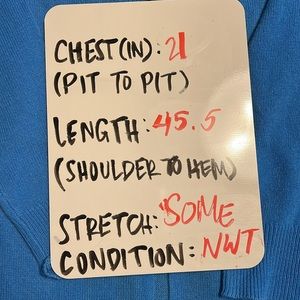 CHEST(IN): 21
(PIT TO PIT)
LENGTH: 45.5
(SHOULDER TO HEM)
STRETCH: SOME
CONDITION: NWT